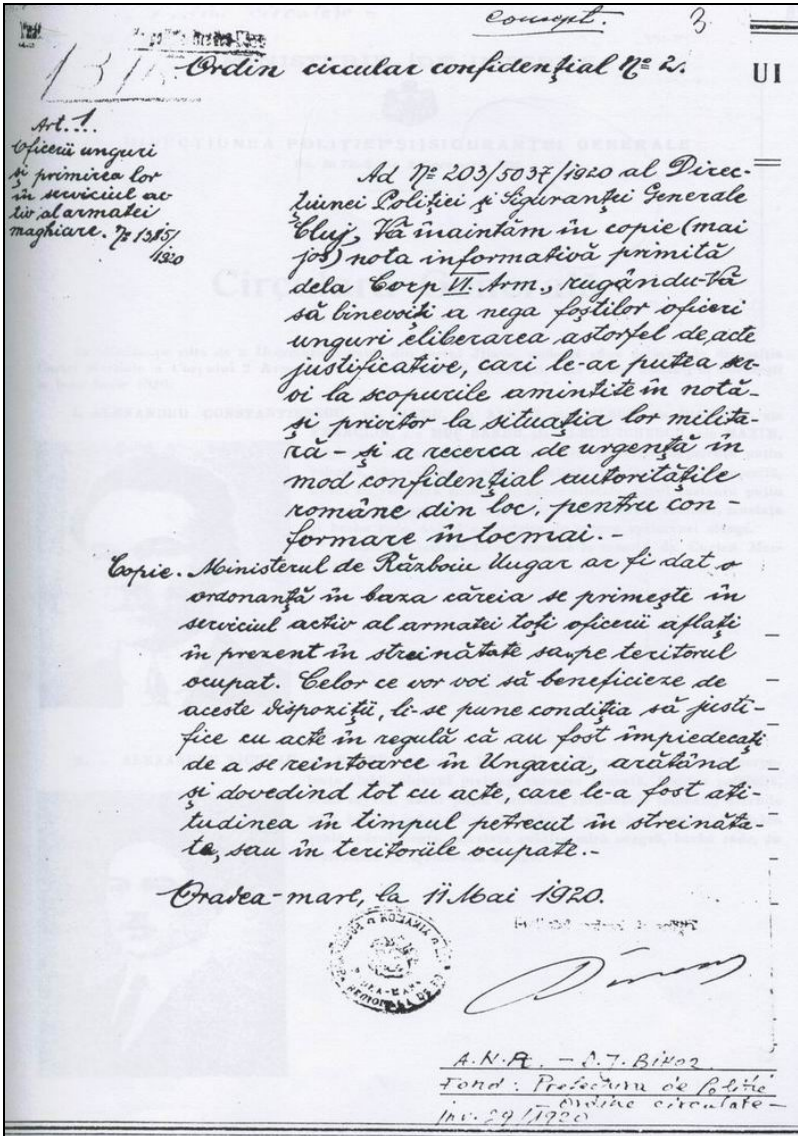 concept. 3
1315
Ordin circular confidenţial Nº 2.
UI
Art. 1.
Oficerii unguri
şi primirea lor
în serviciul ac
tiv al armatei
maghiare. Nº 1315/
1920
Ad Nº 203/5037/1920 al Direc-
ţiunei Poliţiei şi Siguranţei Generale
Cluj, Vă înaintăm în copie (mai
jos) nota informativă primită
dela Corp VI. Arm., rugându-Vă
să binevoiţi a nega foştilor oficeri
unguri eliberarea astorfel de acte
justificative, cari le-ar putea ser-
vi la scopurile amintite în notă-
şi privitor la situaţia lor milita-
ră - şi a recerca de urgenţă - în
mod confidenţial autorităţile
române din loc, pentru con
formare întocmai. -
Copie. Ministerul de Războiu Ungar ar fi dat o
ordonanţă în baza căreia se primeşte în
serviciul activ al armatei toţi oficerii aflaţi
în prezent în streinătate sau pe teritorul
ocupat. Celor ce vor voi să beneficieze de
aceste dispoziţii, li-se pune condiţia să justi-
fice cu acte în regulă că au fost împiedecaţi
de a se reîntoarce în Ungaria, arătând
şi dovedind tot cu acte, care le-a fost ati-
tudinea în timpul petrecut în streinăta-
te, sau în teritoriile ocupate. -
Oradea-mare, la 11 Mai 1920.
ROMANIA
A.N.R. - D.J. Bihor
Fond: Prefectura de Poliţie
- Ordine circulate -
inv. 29/1920